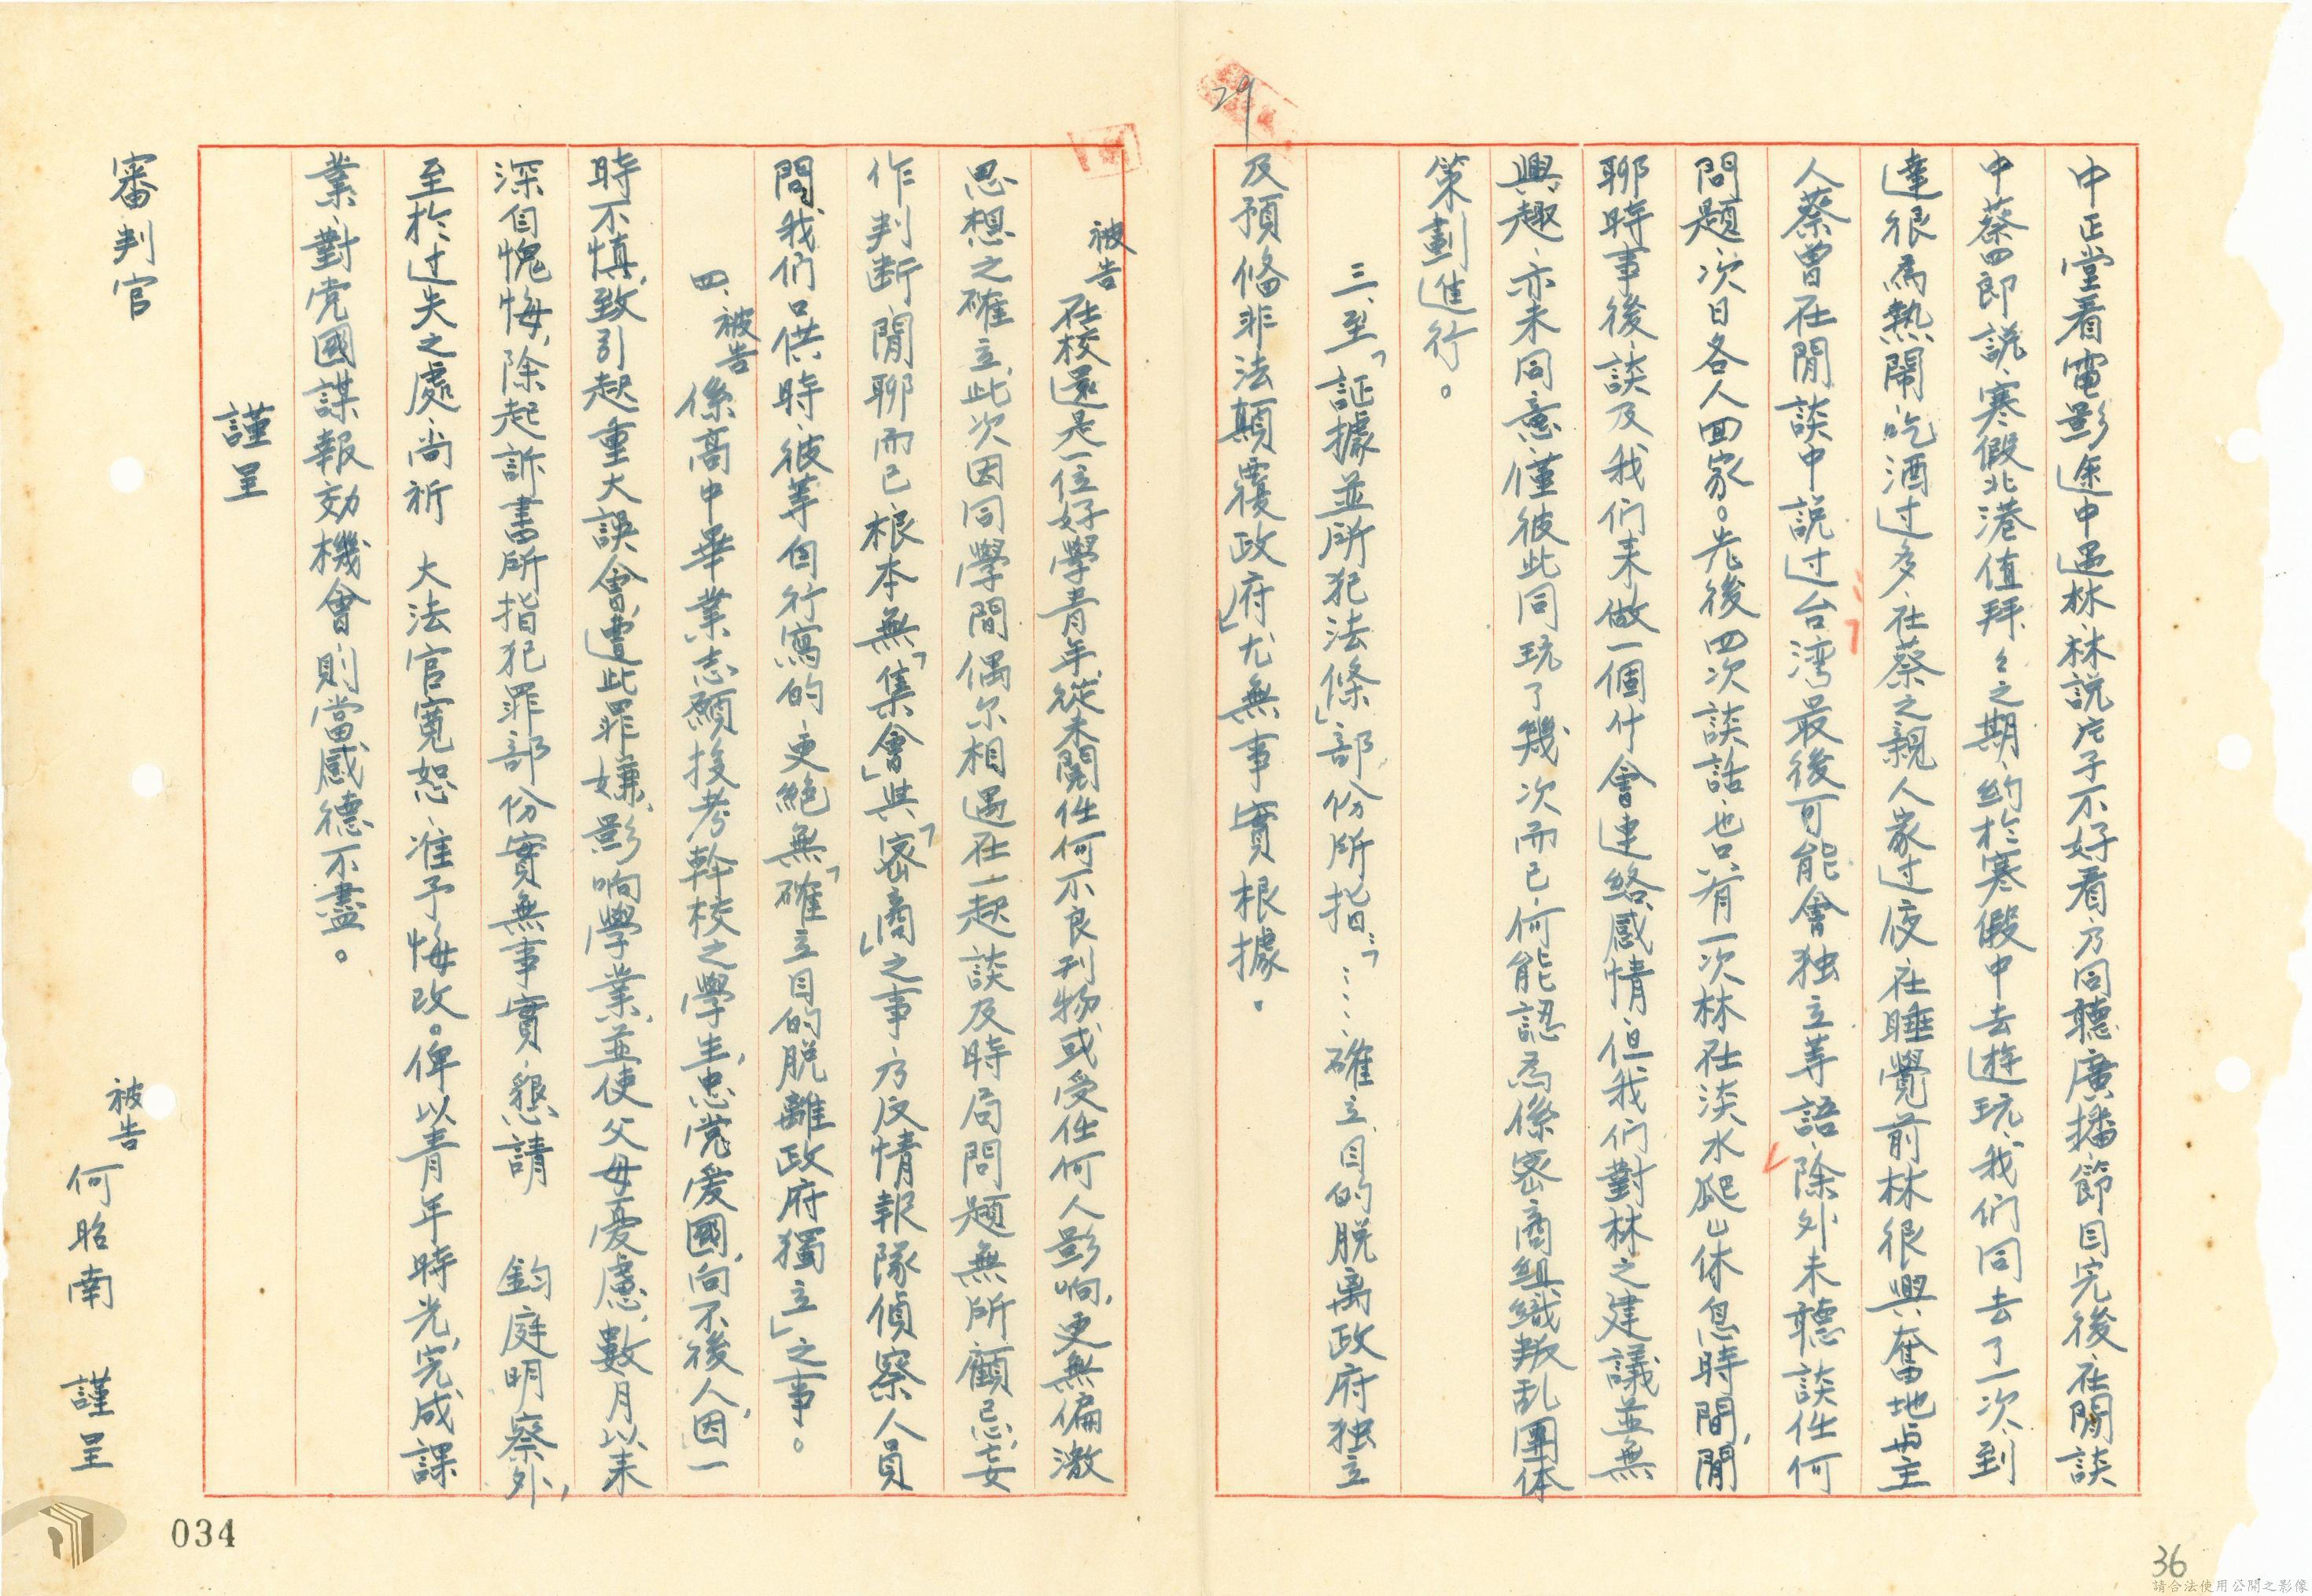 中正堂看電影途中遇林、林說片子不好看乃同聽廣播節目完後在閒談
中蔡四郎說、寒假北港值拜々之期、約於寒假中去遊玩、我们同去了一次、到
達很為熱鬧、吃酒过多、在蔡之親人家过夜在睡覺前林很興奮地与主
人蔡曾在閒談中說过台湾最後可能會独立等語、除外未聽談任何
問題次日各人回家。先後四次談話也只有一次林在淡水爬山休息時間、閒
聊時事後談及我们来做一個什會連絡感情、但我们對林之建議並無
興趣、亦未同意僅彼此同玩了幾次而已、何能認為係密商組織叛乱團体
策劃進行。
三、至「証據並所犯法條」部份所指：「……確立目的脱离政府独立
及預俻非法顛覆政府」尤無事實根據。
被告在校還是一位好學青年、從未閱任何不良刊物或受任何人影响、更無偏激
思想之確立、此次因同學間偶尔相遇在一起談及時局問題無所顧忌、妄
作判断、閒聊而已、根本無「集會」與「密商」之事乃反情報隊偵察人員
問、我们口供時、彼等自行寫的、更絕無「確立目的脱離政府獨立」之事。
四、被告係高中畢業志願投考幹校之學生、忠党爱國、向不後人、因一
時不慎、致引起重大誤會、遭此罪嫌、影响學業、並使父母憂慮、數月以来
深自愧悔、除起訴書所指犯罪部份實無事實、懇請 鈞庭明察外，
至於过失之處、尚祈 大法官寬恕、准予悔改。俾以青年時光、完成課
業、對党國謀報効機會則當感德不盡。
謹呈
審判官
被告 何昭南 謹呈
29
034
36
請合法使用公開之影像